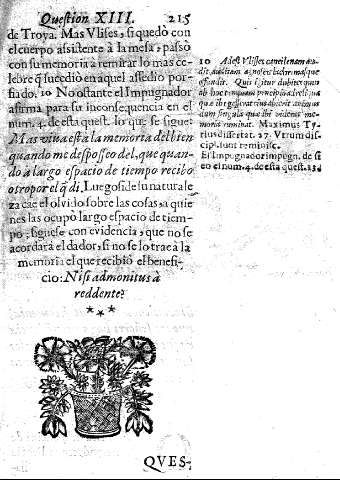 Question XIII. 215
de Troya. Mas Vlises, si quedò con
el cuerpo assistente à la mesa, passò
con su memoria à remirar lo mas ce-
lebre q̃ sucediò en aquel assedio por-
fiado. 10 No ostante el Impugnador
afirma para su inconsequencia en el
num. 4. de esta quest. lo que se sigue:
Mas viua està la memoria del bien
quando me desposseo del, que quan-
do à largo espacio de tiempo recibo
otro por el q̃ di. Luego si de su naturale
za cae el olvido sobre las cosas, a quie
nes las ocupò largo espacio de tiem-
po, siguese con evidencia, que no se
acordarà el dador, si no se lo trae à la
memoria el que recibiò el benefi-
cio: Nisi admonitus à
reddente?
10 Adest Vlisses
Quis igitur dubitet quan
memoria ruminat. Maximus Ty-
rius dissertat. 27. Vtrum dis-
cipl. sunt reminisc.
El Impugnador impugn. de si
eo el num. 4. de esta quest.
QVES-